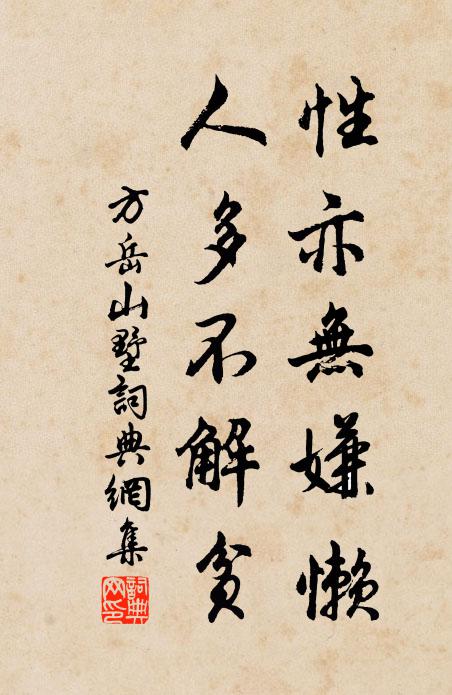 性亦無嫌懶
人多不解貧
方岳山墅詞典網集
詞典網印